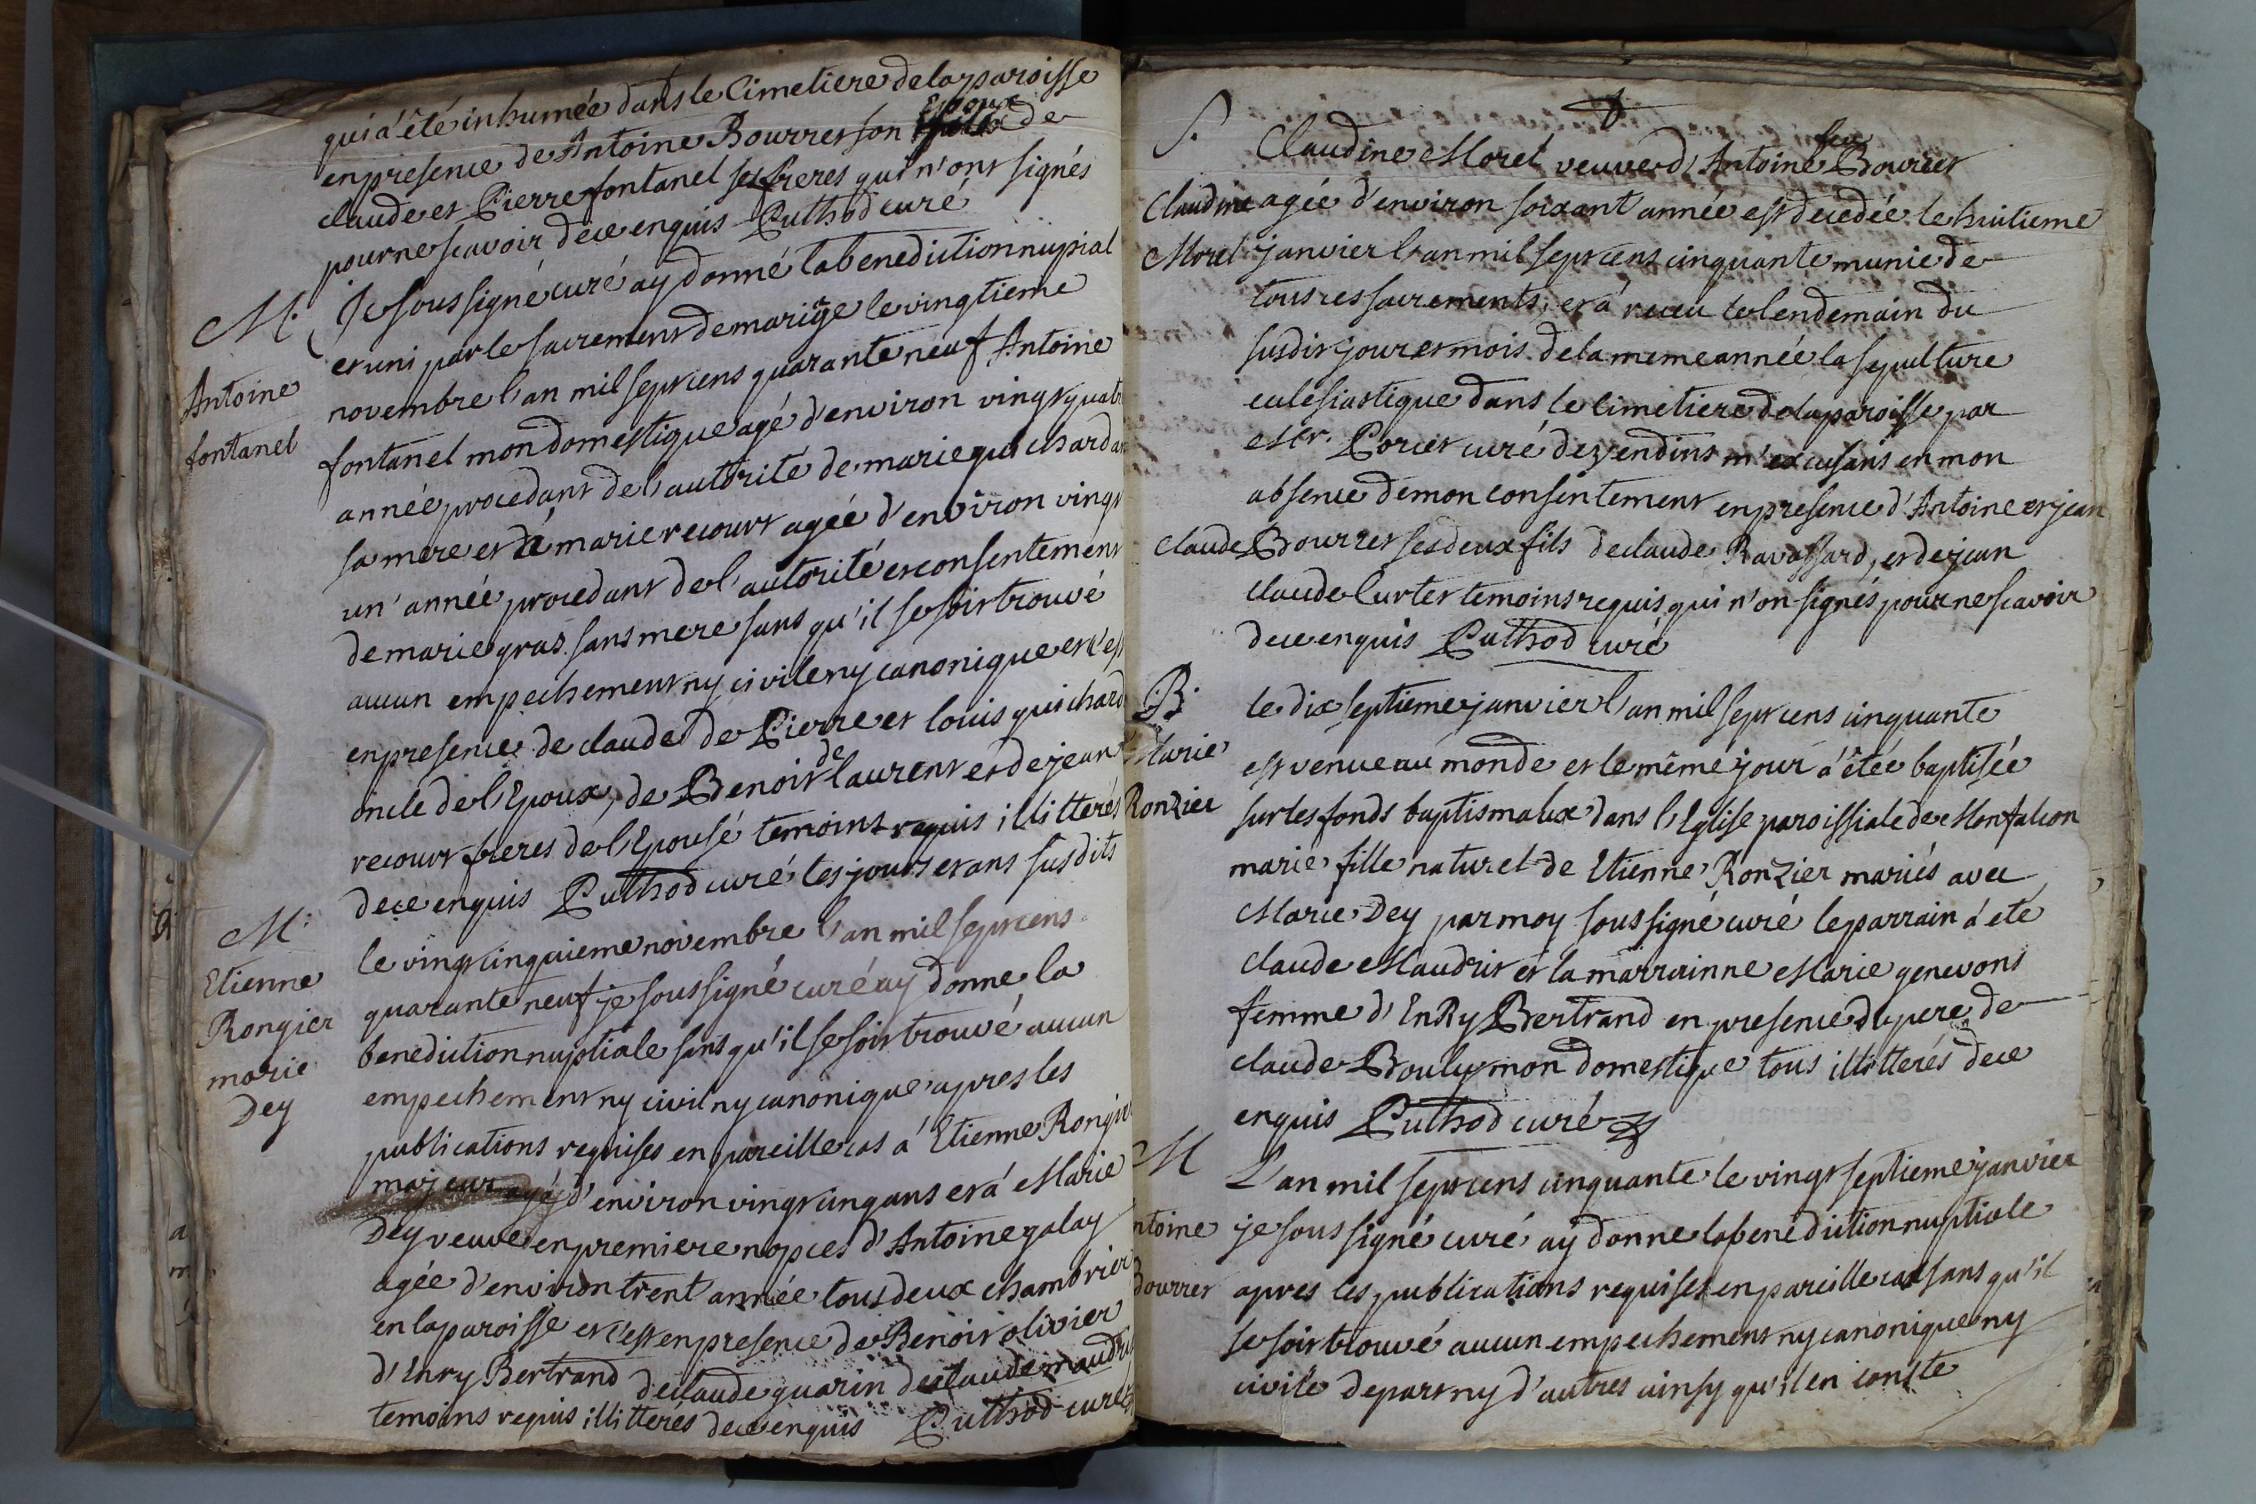 qui a été inhumée dans le Cimetiere de la paroisse
en presence de Antoine Bourret son Epoux de
claude et Pierre fontanel ses freres qui n'ont signés
pour ne scavoir de ce enquis Puthod curé
M. Je soussigné curé ay donné la benediction nupsial
et uni par le sacrement de mariage le vingtieme
Antoine novembre l'an mil sept cens quarante neuf Antoine
fontanel fontanel mon domestique agé d'environ vingt quatr
année procedant de l'autorité de marie guichardan
sa mere et à marie recourt agée d'environ vingt
un' année procedant de l'autorité et consentement
de marie gras sans mere sans qu'il se soit trouvé
aucun empechement ny civile ny canonique et c'est
en presence de claude de Pierre et louis guichard
oncle de l'Epoux, de Benoit de laurent et de jean
recourt freres de l'Epousé temoins requis illitterés
de ce enquis Puthod curé les jours et ans susdits
M. le vingt cinquieme novembre l'an mil sept cens
Etienne quarante neuf je soussigné curé ay donné la
Rongier benediction nuptiale sans qu'il se soit trouvé aucun
marie empechement ny civil ny canonique apres les
Dey publications requises en pareille cas a Etienne Rongier
majeur agé d'environ vingt cinq ans et à Marie
Dey veuve en premiere nopces d'Antoine galay
agée d'environ trent année tous deux chambrier
en la paroisse et c'est en presence de Benoit olivier
d'Enry Bertrand de claude guarin de claude maudrit
temoins requis illitterés de ce enquis Puthod curé
S. Claudine Morel veuve d'Antoine feu Bourret
Claudine agée d'environ soixant année est decedée le huitieme
Morel janvier l'an mil sept cens cinquante munie de
tous ces sacrements, et a receu le lendemain du
susdit jour et mois de la meme année la sepulture
eclésiastique dans le cimetiere de la paroisse par
Mr. Poriet curé de yendins m'excusant en mon
absence de mon consentement en presence d'Antoine et jean
claude Bourret ses deux fils de claude Ravassard, et de jean
claude Curtet temoins requis qui n'on signés pour ne scavoir
de ce enquis Puthod curé
B. le dix septieme janvier l'an mil sept cens cinquante
Marie est venue au monde et le même jour a étée baptisée
Ronzier sur les fonds baptismaux dans l'Eglise paroissiale de Monfalcon
marie fille naturel de Etienne Ronzier mariés avec
Marie Dey par moy soussigné curé le parrain a eté
claude Maudrit et la marrainne Marie genevons
femme d'EnRy Bertrand en presence du pere de
claude Bouly mon domestique tous illitterés de ce
enquis Puthod curé
M L'an mil sept cens cinquante le vingt septieme janvier
ntoine je soussigné curé ay donne la benediction nuptiale
Bourret apres les publications requises en pareille cas sans qu'il
se soit trouvé aucun empechement ny canonique ny
civile de part ny d'autres ainsy qu'il en conste